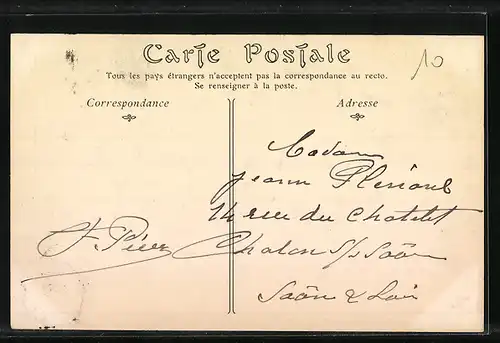 Carte Postale
10
Tous les pays étrangers n'acceptent pas la correspondance au recto.
Se renseigner à la poste.
Correspondance
Adresse
Madame
Jeanne
14 rue du Chatelet
Chalon s/s Saône
Saône & Loire